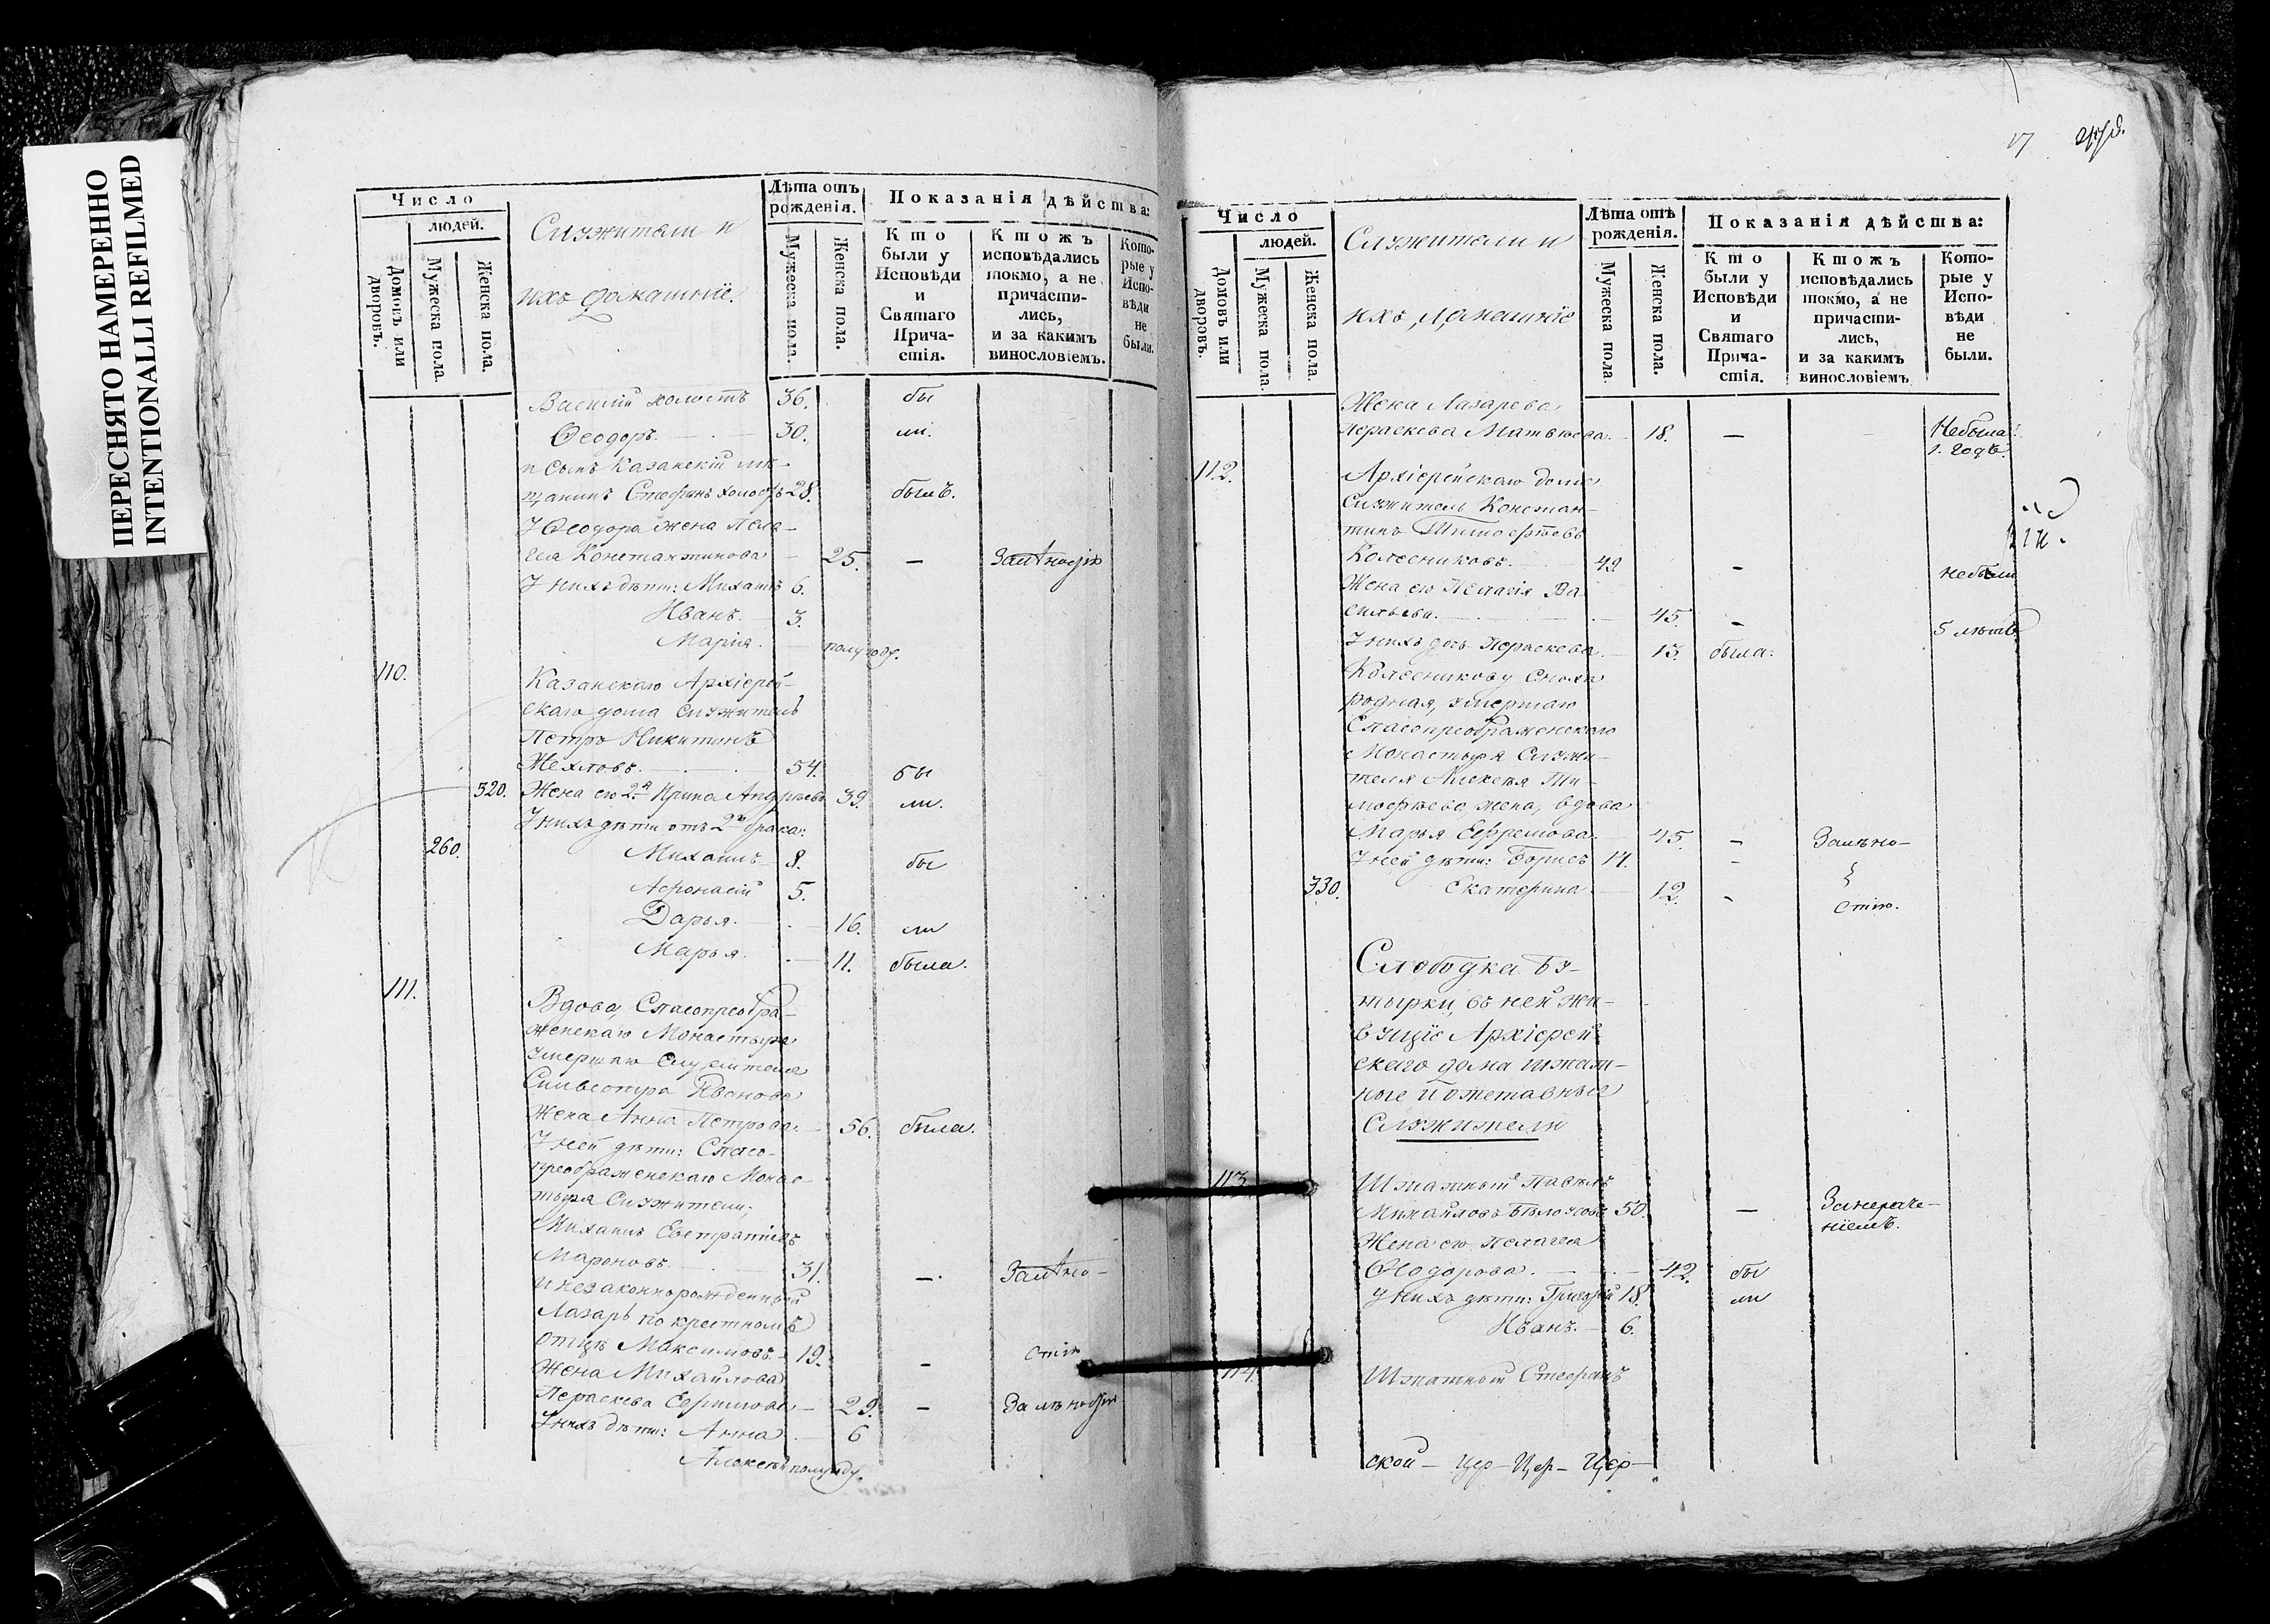 ПЕРЕСНЯТО НАМЕРЕННО
INTENTIONALLI REFILMED
Число
людей.
Домовъ или дворовъ.
Мужеска пола.
Женска пола.
Служители и
ихъ домашніе.
Лѣта отъ рожденія.
Мужеска пола.
Женска пола.
Показанія дѣйства:
Кто были у Исповѣди и Святаго Причастія.
Ктожъ исповѣдались токмо, а не причастились, и за какимъ винословіемъ.
Которые у Исповѣди не были.
Василій холостъ 36. бы
Ѳеодоръ. — 30. ли.
и сынъ Казанскій мѣ-
щанинъ Стефанъ холостъ 28. былъ.
У Ѳеодора жена Пела-
гея Константинова — 25. —
У нихъ дѣти: Михаилъ 6.
Иванъ. 3.
Марія. — полугоду.
110.
Казанскаго Архіерей-
скаго дома служитель
Петръ Никитинъ
Жехловъ. 54. бы
320. Жена его 2я Ирина Андреева 39. ли.
У нихъ дѣти отъ 2го брака:
260. Михаилъ 8. бы
Афонасій 5.
Дарья. — 16. ли
Марья. — 11. была.
111.
Вдова, Спасопреобра-
женскаго Монастыря
умершаго служителя
Сильвестра Иванова
жена Анна Петрова. — 56. была.
У ней дѣти: Спасо-
преображенскаго Монас-
тыря служители;
Михаилъ Евстратіевъ
Мароновъ. 31. — За лѣно-
и незаконнорожденный
Лазарь по крестномъ
отцѣ Максимовъ. 19. — стію
Жена Михайлова
Параскева Ефимова — 29. — За лѣностію
У нихъ дѣти: Анна — 6
Алексѣй полугоду.
17
Число
людей.
Домовъ или дворовъ.
Мужеска пола.
Женска пола.
Служители и
ихъ домашніе
Лѣта отъ рожденія.
Мужеска пола.
Женска пола.
Показанія дѣйства:
Кто были у Исповѣди и Святаго Причастія.
Ктожъ исповѣдались токмо, а не причастились, и за какимъ винословіемъ
Которые у Исповѣди не были.
Жена Лазарева
Параскева Матвѣева. — 18. — Небыла
1. годъ.
112.
Архіерейскаго дома
служитель Констан-
тинъ Тимофѣевъ
Колесниковъ. 49. — небыли
Жена его Пелагія Ва-
сильева. — 45 — 5 лѣтъ
У нихъ дочь Параскева. — 13. была.
Колесникову сноха
родная, умершаго
Спасопреображенскаго
Монастыря служи-
теля Алексѣя Ти-
мофѣева, жена, вдова
Марья Ефремова. — 45. — За лѣно-
У ней дѣти: Борисъ 14. —
330. Екатерина — 12. — стію.
Слободка Бу-
тырки, въ ней жи-
вущіе Архіерей-
скаго дома штат-
ные и отставные
Служители
113.
Штатный Павелъ
Михайловъ 50. — За нераче-
ніемъ.
Жена его Пелагея
Ѳеодорова. — 42. бы
У нихъ дѣти: Григорій 18. ли
Иванъ. — 6.
114.
Штатный Стефанъ
ской — Цер — Цер — Цер —